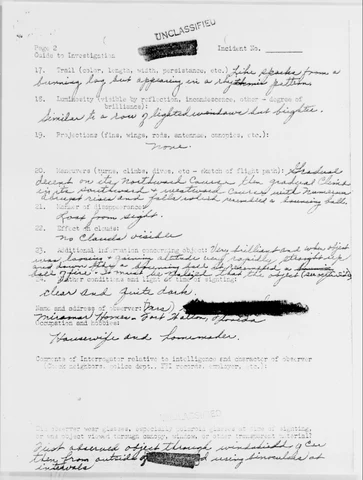 UNCLASSIFIED
Page 2
Incident No.
Guide to Investigation
17. Trail (color, length, width, persistence, etc.) Like sparks from a
burning log but appearing in a rhythmic pattern.
18. Luminosity (visible by reflection, incandescence, other - degree of
brilliance):
Similar to a row of lighted windows but brighter.
19. Projections (fins, wings, rods, antennae, canopies, etc.):
None.
20. Maneuvers (turns, climbs, dives, etc - sketch of flight path): Gradual
descent on its Northward Course then gradual Climb
in its Southward - Westward Course with numerous
abrupt rises and falls which resembled a bouncing ball.
21. Manner of disappearance:
Loss from sight.
22. Effect on clouds:
no Clouds visible
23. Additional information concerning object: Very brilliant and when object
was loosing + gaining altitude very rapidly straight up
and
ball of fire. It must be realized that the object
24. Weather conditions and light at time of sighting:
clear and quite dark.
Name and address of observer: Mrs)
Miramar Homes - Fort Walton, Florida
Occupation and hobbies:
Housewife and homemaker.
Comments of Interrogator relative to intelligence and character of observer
(Check neighbors, police dept., FBI records, employer, etc.):
Did observer wear glasses, especially polaroid glasses at time of sighting,
or was object viewed through canopy, window, or other transparent material?
First observed object through windshield of car
then from outside of and using binoculars at
intervals